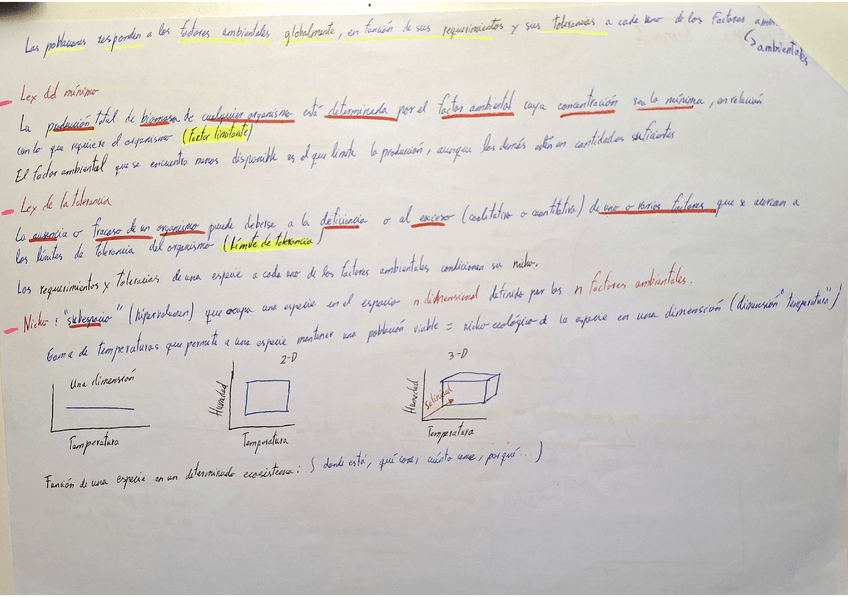 Las poblaciones responden a los factores ambientales globalmente, en función de sus requerimientos y sus tolerancias a cada uno de los factores amb.
ambientales
Lex del mínimo
La producción total de biomasa de cualquier organismo está determinada por el factor ambiental cuya concentración sea la mínima, en relación
con lo que requiere el organismo (Factor limitante)
El factor ambiental que se encuentra menos disponible es el que limita la producción, aunque los demás estén en cantidades suficientes
Lex de la tolerancia
La ausencia o fracaso de un organismo puede deberse a la deficiencia o al exceso (cualitativo o cuantitativo) de uno o varios factores que se acercan a
los límites de tolerancia del organismo (Límite de tolerancia)
Los requerimientos y tolerancias de una especie a cada uno de los factores ambientales condicionen su nicho.
Nicho: "subespacio" (hipervolumen) que ocupa una especie en el espacio n dimensional definido por los n factores ambientales.
Gama de temperaturas que permite a una especie mantener una población viable = nicho ecológico de la especie en una dimensión (dimensión "temperatura")
Una dimensión
Temperatura
2-D
Humedad
Temperatura
3-D
Humedad
Salinidad
Temperatura
Función de una especie en un determinado ecosistema: (donde está, qué come, cuánto come, por qué...)